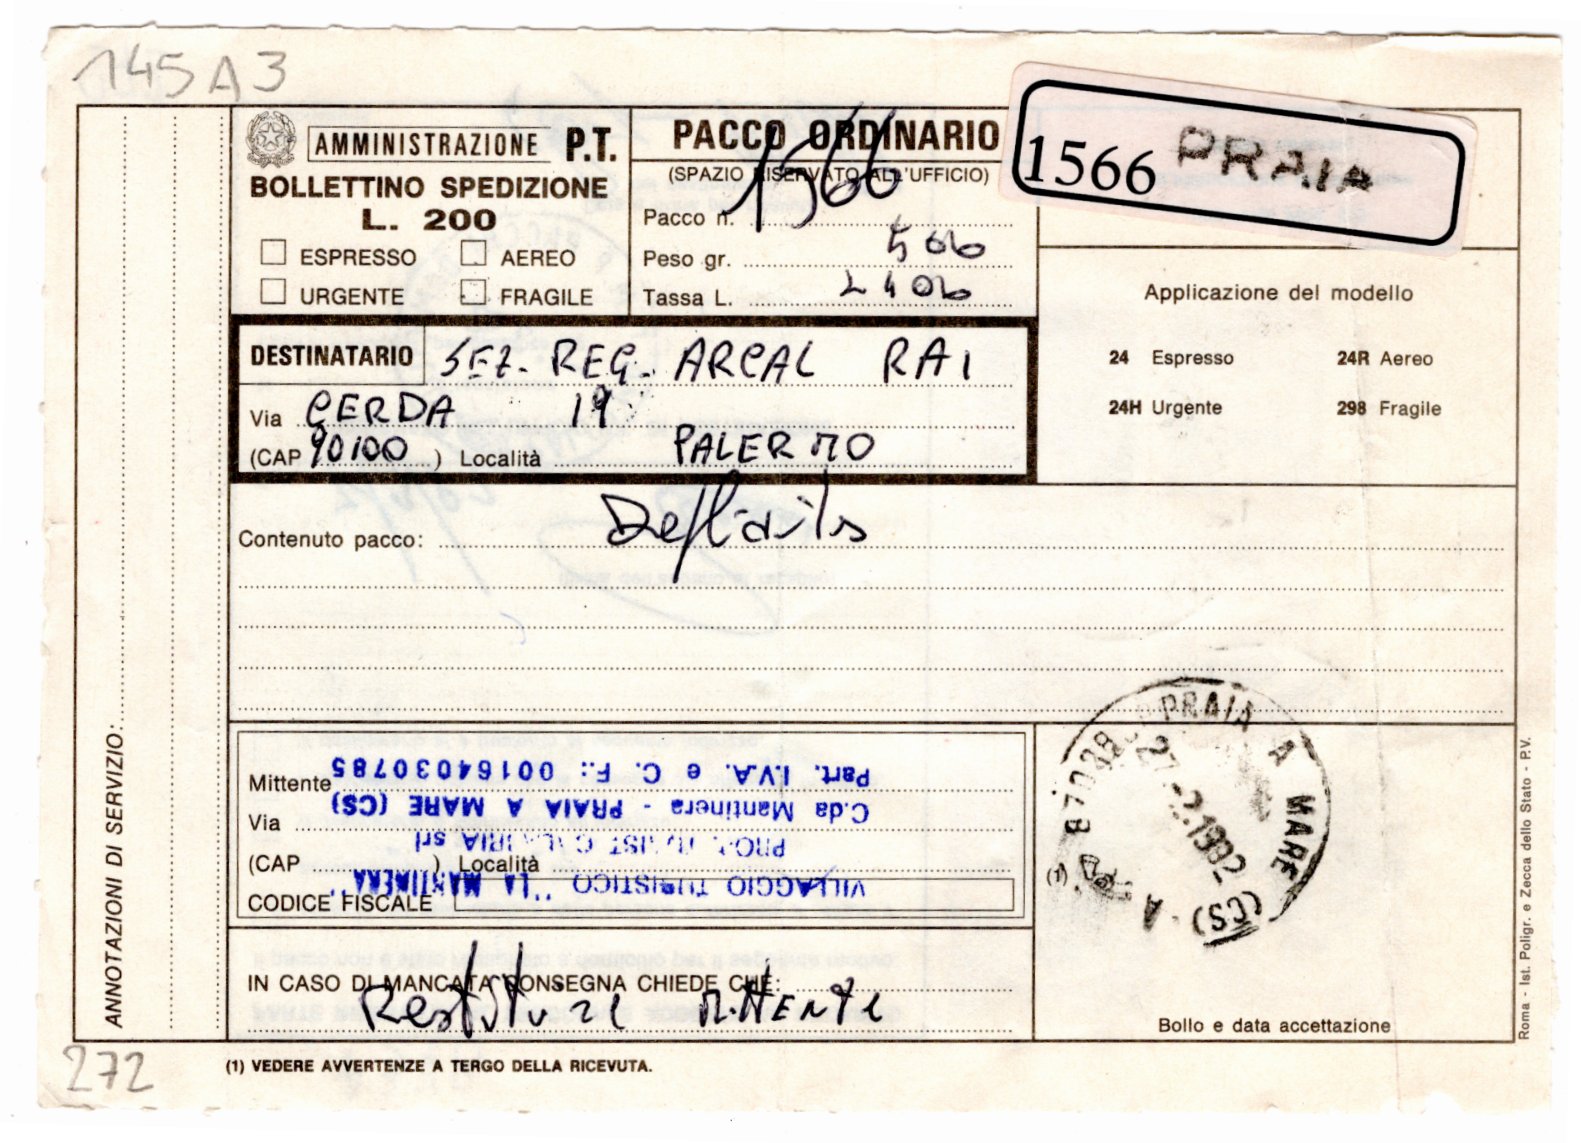 145 A 3
AMMINISTRAZIONE P.T.
BOLLETTINO SPEDIZIONE
L. 200
ESPRESSO AEREO
URGENTE FRAGILE
PACCO ORDINARIO
(SPAZIO RISERVATO ALL'UFFICIO)
Pacco n. 1566
Peso gr. 500
Tassa L. 2400
1566 PRAIA
Applicazione del modello
24 Espresso 24R Aereo
24H Urgente 298 Fragile
DESTINATARIO SEZ. REG. ARCAL RAI
Via CERDA 19
(CAP 90100) Località PALERMO
Contenuto pacco:
ANNOTAZIONI DI SERVIZIO:
Mittente
Via
(CAP ) Località
CODICE FISCALE
VILLAGGIO TURISTICO "LA MANTINERA"
CALABRIA srl
C.da Mantinera - PRAIA A MARE (CS)
Part. I.V.A. e C. F.: 00164030785
87028 PRAIA A MARE (CS)
27-2.1982
A
(1)
Bollo e data accettazione
IN CASO DI MANCATA CONSEGNA CHIEDE CHE:
Restituire Mittente
(1) VEDERE AVVERTENZE A TERGO DELLA RICEVUTA.
272
Roma - Ist. Poligr. e Zecca dello Stato - P.V.